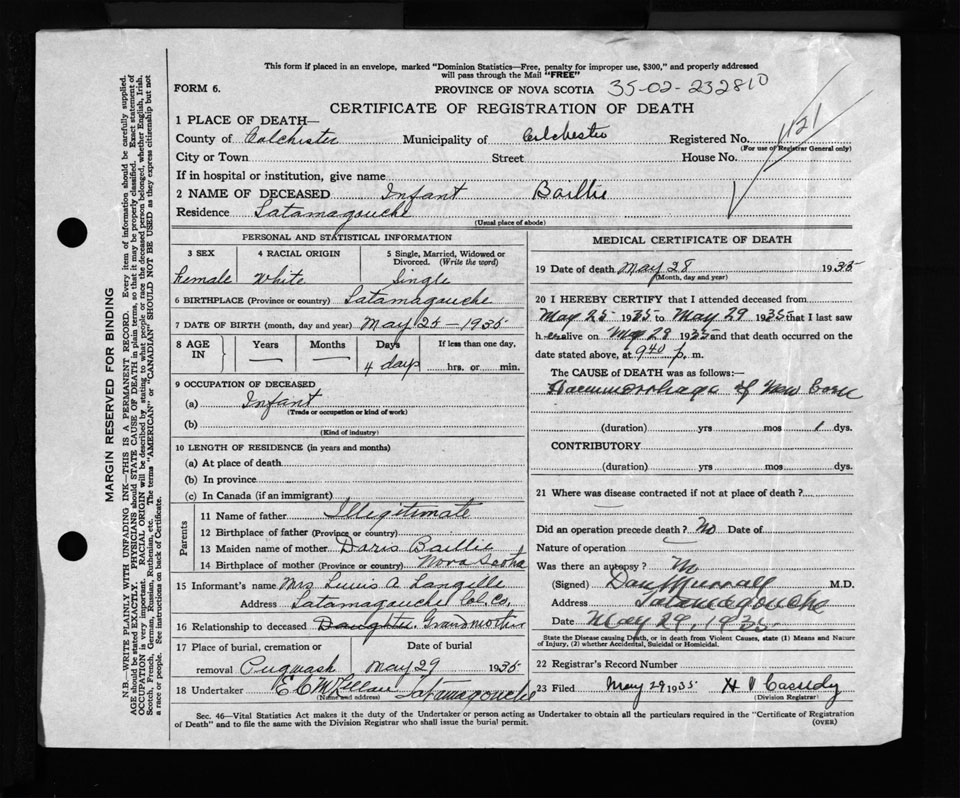 This form if placed in an envelope, marked "Dominion Statistics—Free, penalty for improper use, $300," and properly addressed
will pass through the Mail "FREE"
FORM 6.
PROVINCE OF NOVA SCOTIA 35-02-232810
CERTIFICATE OF REGISTRATION OF DEATH
1 PLACE OF DEATH—
County of Colchester Municipality of Colchester Registered No. 1121
(For use of Registrar General only)
City or Town Street House No.
If in hospital or institution, give name
2 NAME OF DECEASED Infant Baillie
Residence Tatamagouche
(Usual place of abode)
PERSONAL AND STATISTICAL INFORMATION
3 SEX 4 RACIAL ORIGIN 5 Single, Married, Widowed or
Divorced. (Write the word)
Female White Single
6 BIRTHPLACE (Province or country) Tatamagouche
7 DATE OF BIRTH (month, day and year) May 25-1935
8 AGE
IN
Years Months Days If less than one day,
4 days hrs. or min.
9 OCCUPATION OF DECEASED
(a) Infant
(Trade or occupation or kind of work)
(b)
(Kind of industry)
10 LENGTH OF RESIDENCE (in years and months)
(a) At place of death
(b) In province
(c) In Canada (if an immigrant)
Parents
11 Name of father Illegitimate
12 Birthplace of father (Province or country)
13 Maiden name of mother Doris Baillie
14 Birthplace of mother (Province or country) Nova Scotia
15 Informant's name Mrs Lewis A Langille
Address Tatamagouche Col. Co.
16 Relationship to deceased Daughter Grandmother
17 Place of burial, cremation or Date of burial
removal Pugwash May 29 1935
18 Undertaker E C McLellan Tatamagouche
(Name and address)
MEDICAL CERTIFICATE OF DEATH
19 Date of death May 28 1935
(Month, day and year)
20 I HEREBY CERTIFY that I attended deceased from
May 25 1935 to May 29 1935 that I last saw
h er alive on May 28 1935 and that death occurred on the
date stated above, at 9 40 p. m.
The CAUSE of DEATH was as follows:—
Haemmorrhage of New Born
(duration) yrs mos 1 dys.
CONTRIBUTORY
(duration) yrs mos dys.
21 Where was disease contracted if not at place of death?
Did an operation precede death? No Date of
Nature of operation
Was there an autopsy?
(Signed) Dan Murray M.D.
Address Tatamagouche
Date May 29, 1935
State the Disease causing Death, or in death from Violent Causes, state (1) Means and Nature
of Injury, (2) whether Accidental, Suicidal or Homicidal.
22 Registrar's Record Number
23 Filed May 29 1935 Cassidy
(Division Registrar)
Sec. 46—Vital Statistics Act makes it the duty of the Undertaker or person acting as Undertaker to obtain all the particulars required in the "Certificate of Registration
of Death" and to file the same with the Division Registrar who shall issue the burial permit.
(OVER)
MARGIN RESERVED FOR BINDING
N.B.—WRITE PLAINLY WITH UNFADING INK—THIS IS A PERMANENT RECORD. Every item of information should be carefully supplied.
AGE should be stated EXACTLY. PHYSICIANS should STATE CAUSE OF DEATH in plain terms, so that it may be properly classified. Exact statement of
OCCUPATION is very important. RACIAL ORIGIN will be described by stating to what people or race the deceased person belonged, whether English, Irish,
Scotch, French, German, Russian, Ruthenian, etc. The terms "AMERICAN" or "CANADIAN" SHOULD NOT BE USED as they express citizenship but not
a race or people. See instructions on back of Certificate.